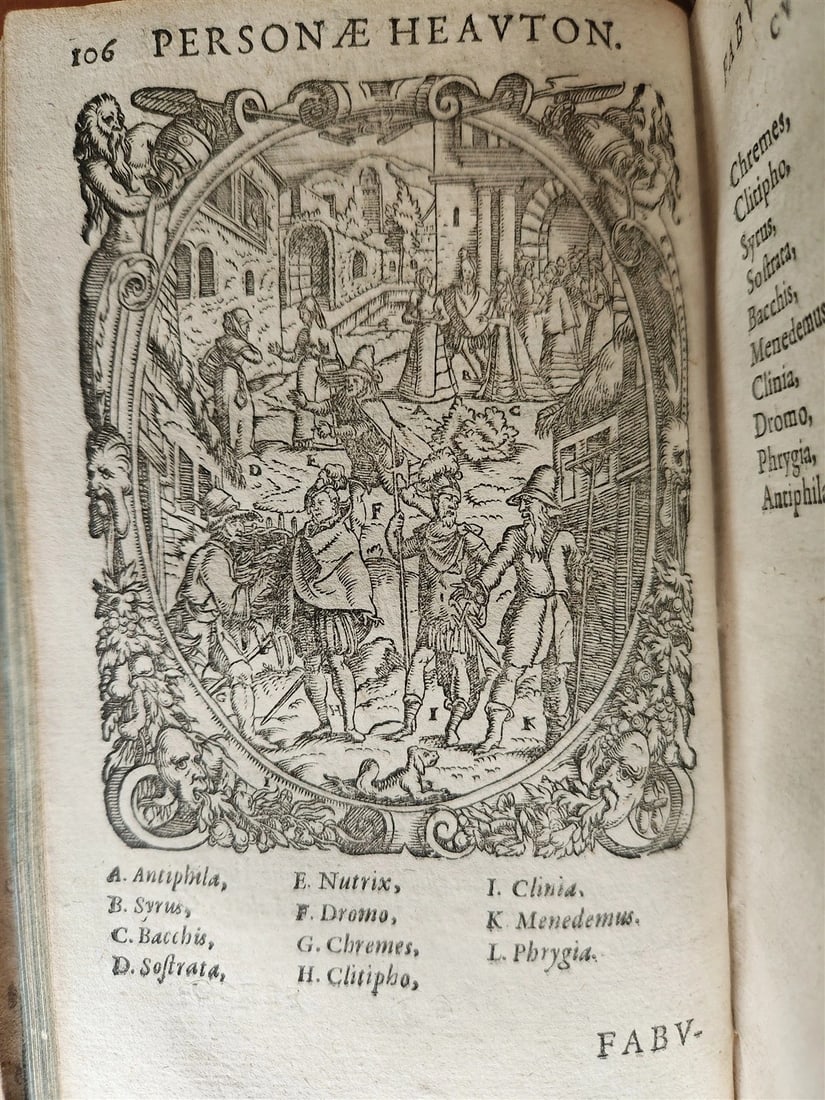 106 PERSONÆ HEAVTON.
A
B
C
D
E
F
H
I
K
A. Antiphila,
B. Syrus,
C. Bacchis,
D. Soſtrata,
E. Nutrix,
F. Dromo,
G. Chremes,
H. Clitipho,
I. Clinia.
K Menedemus.
L. Phrygia.
FABV-
FABV
CV
Chremes,
Clitipho,
Syrus,
Soſtrata,
Bacchis,
Menedemus
Clinia,
Dromo,
Phrygia,
Antiphila